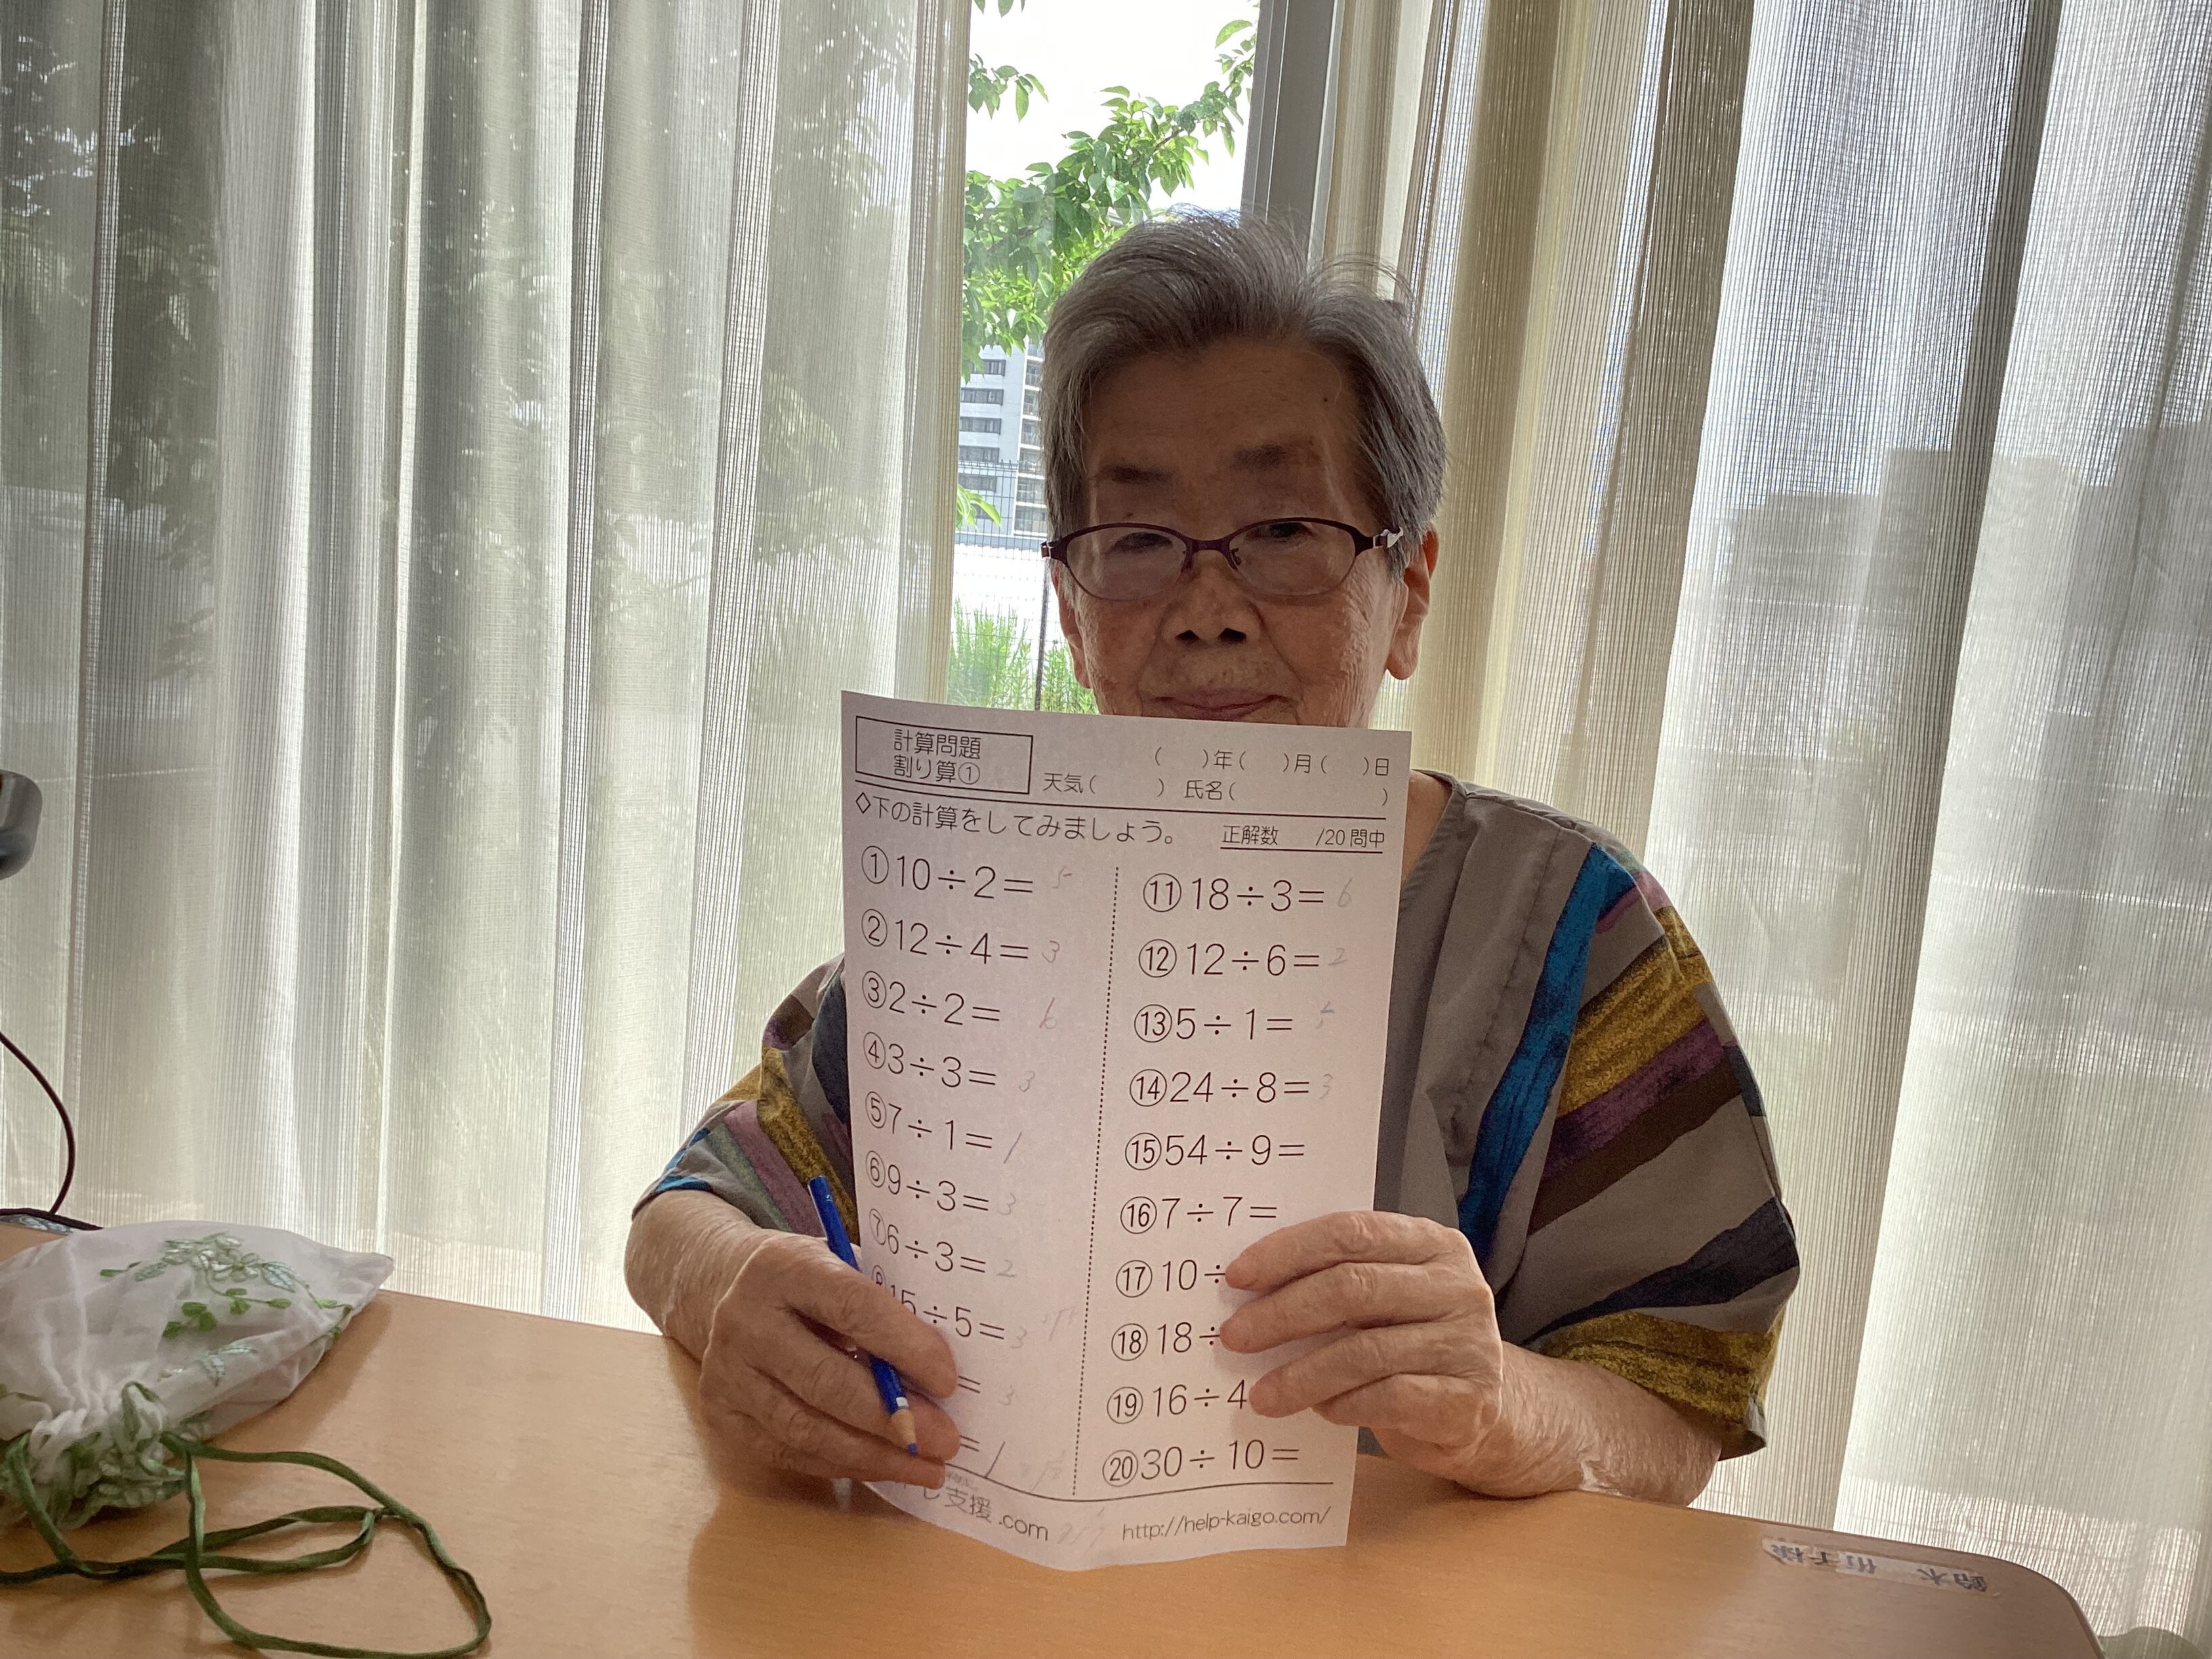 計算問題
割り算①
( )年( )月( )日
天気( ) 氏名( )
◇下の計算をしてみましょう。
正解数 /20問中
①10÷2= 5
②12÷4= 3
③2÷2= 6
④3÷3= 3
⑤7÷1= 1
⑥9÷3= 3
⑦6÷3= 2
⑧15÷5= 3
= 3
= 1
⑪18÷3= 6
⑫12÷6= 2
⑬5÷1= 5
⑭24÷8= 3
⑮54÷9=
⑯7÷7=
⑰10÷
⑱18÷
⑲16÷4
⑳30÷10=
支援.com
http://help-kaigo.com/
鈴木